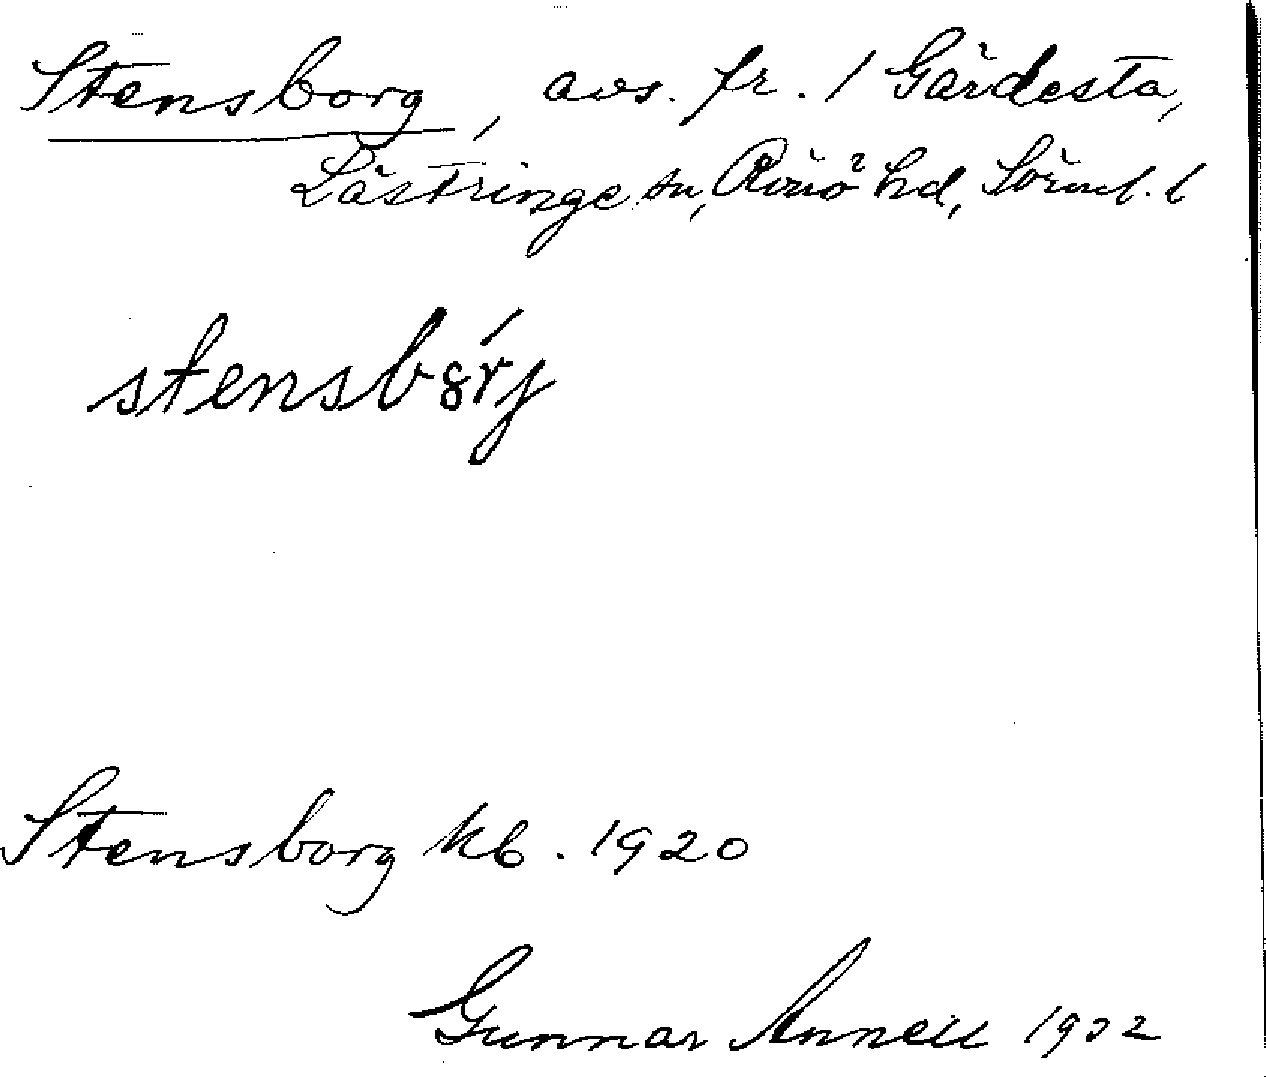 Stensborg, avs. fr. 1 Gärdesta,
Lästringe sn, Rönö hd, Sörml. l
stensbȣ́rj
Stensborg kb. 1920
Gunnar Annell 1932